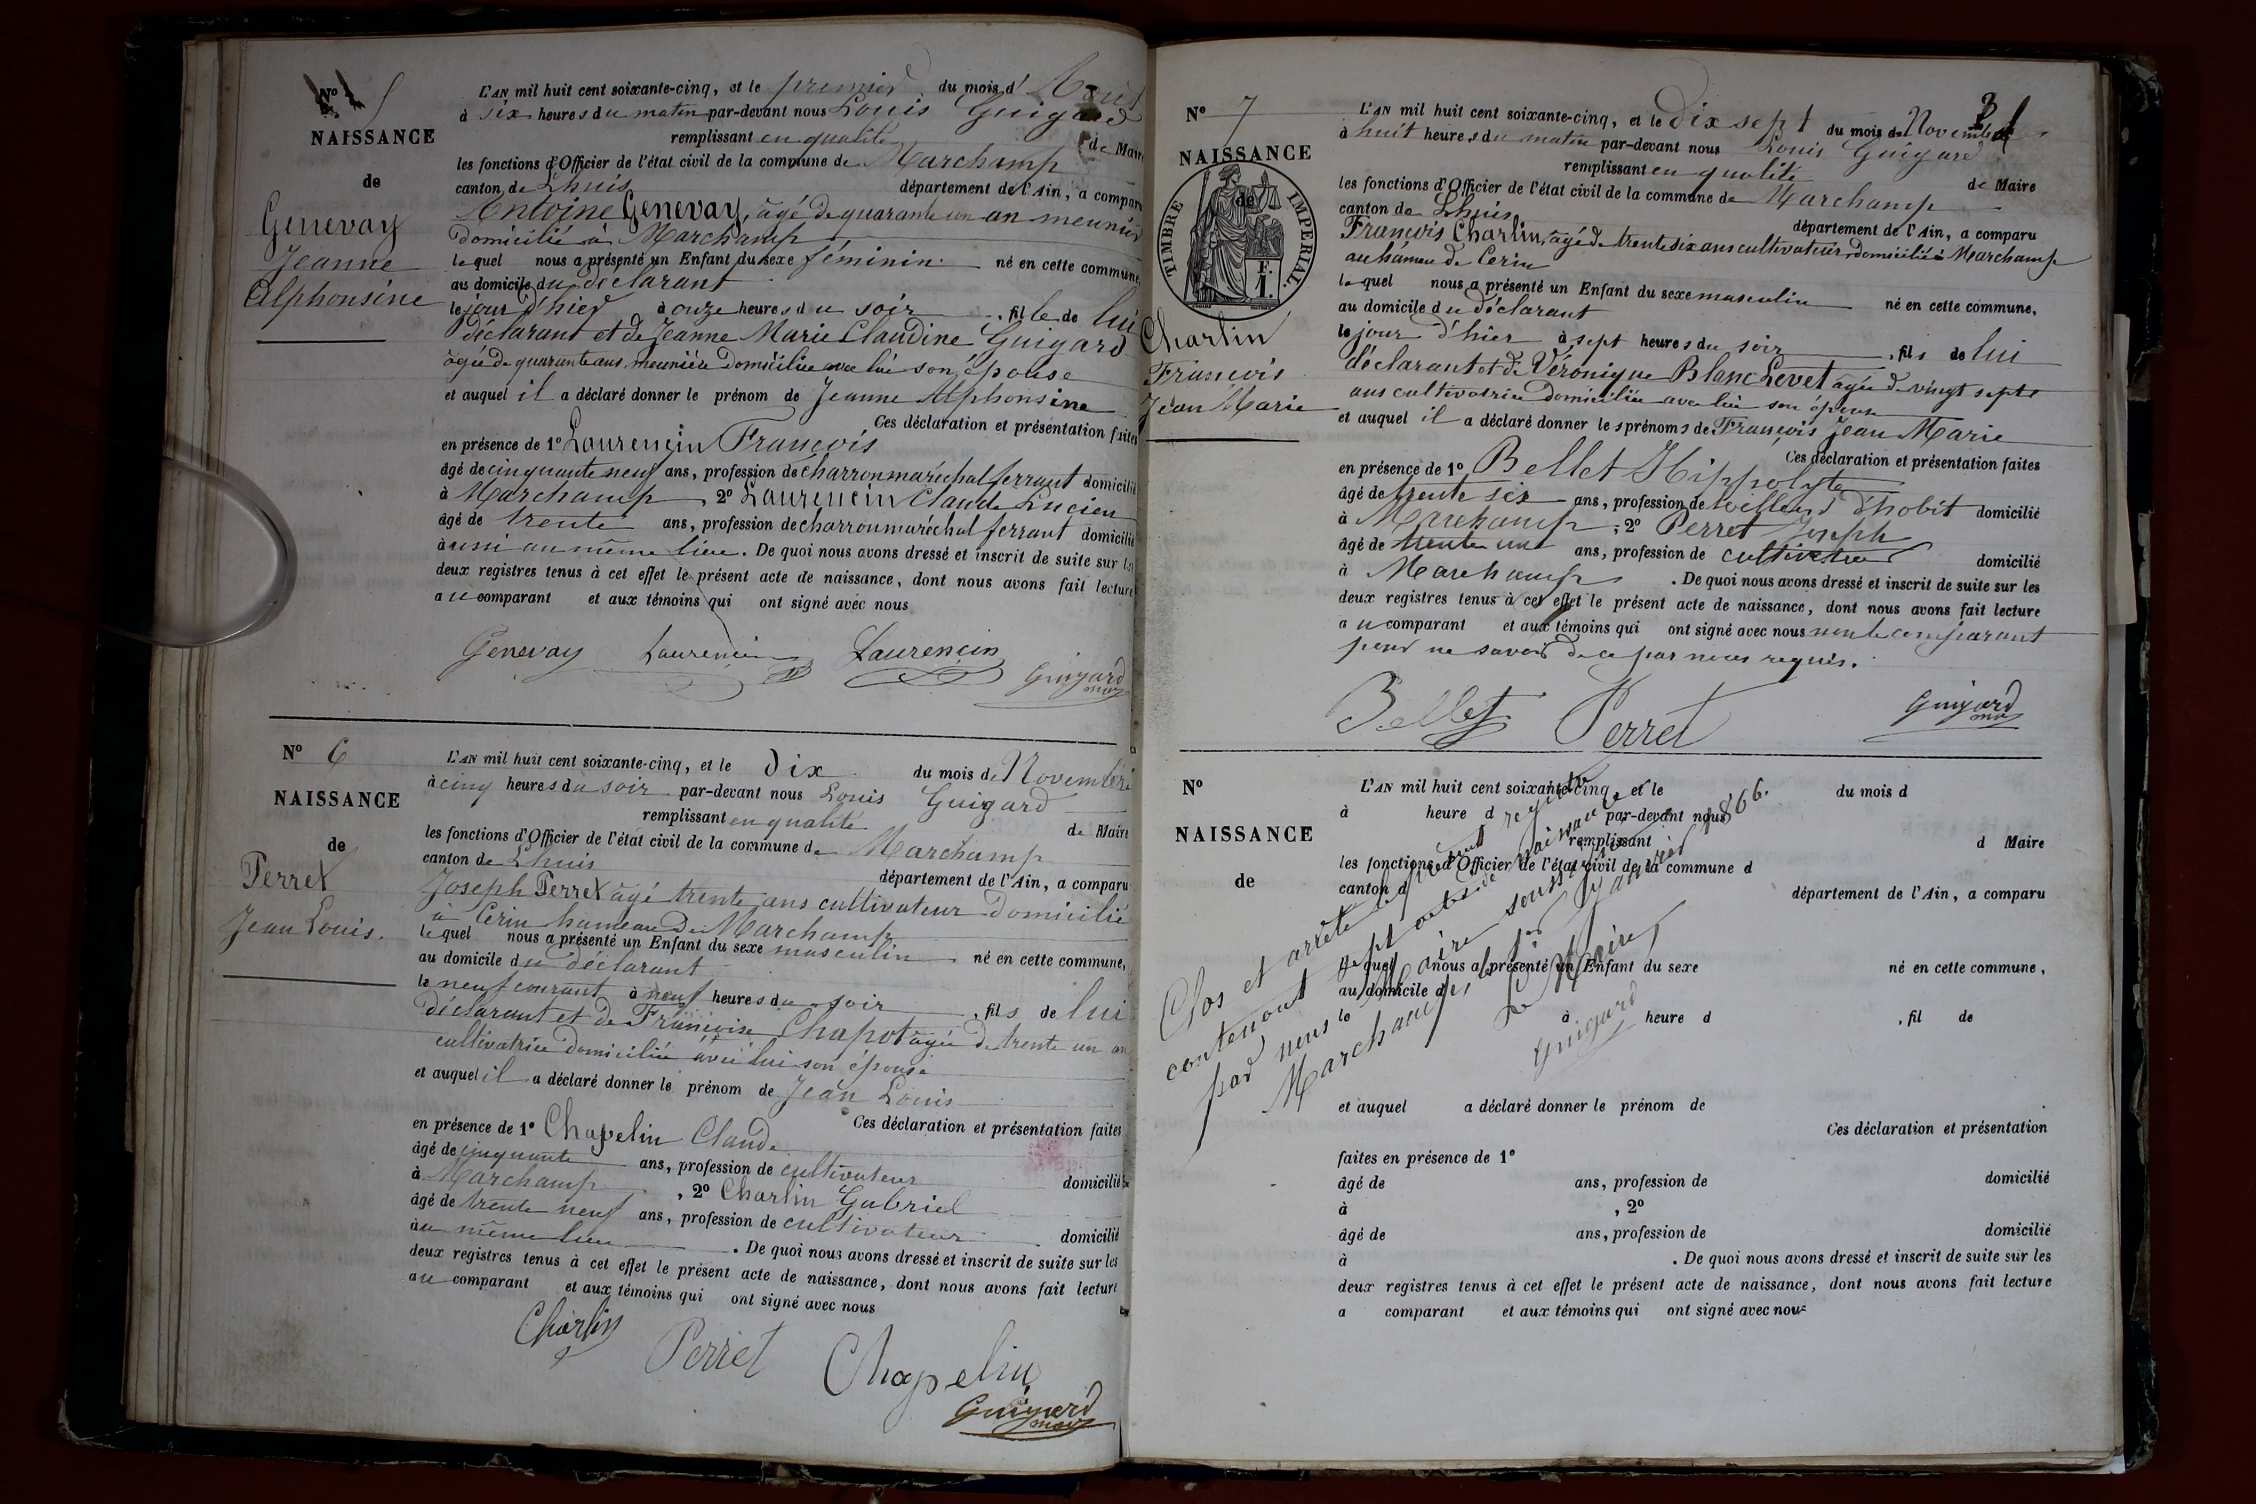 Nº 5
NAISSANCE
de
Genevay
Jeanne
Alphonsine
L'AN mil huit cent soixante-cinq, et le premier du mois d'Aout
à six heures du matin par-devant nous Louis Guigard
remplissant en qualité de Maire
les fonctions d'Officier de l'état civil de la commune de Marchamp
canton de Lhuis département de l'Ain, a comparu
Antoine Genevay, âgé de quarante un an meunier
domicilié à Marchamp
lequel nous a présenté un Enfant du sexe féminin né en cette commune,
au domicile du déclarant
le jour d'hier à onze heures du soir , fille de lui
déclarant et de Jeanne Marie Claudine Guigard
âgée de quarante ans, meunière domiciliée avec lui son épouse
et auquel il a déclaré donner le prénom de Jeanne Alphonsine
Ces déclaration et présentation faites
en présence de 1º Laurencin François
âgé de cinquante neuf ans, profession de charron maréchal ferrant domicilié
à Marchamp , 2º Laurencin Claude Lucien
âgé de trente ans, profession de charron maréchal ferrant domicilié
aussi au même lieu. De quoi nous avons dressé et inscrit de suite sur les
deux registres tenus à cet effet le présent acte de naissance, dont nous avons fait lecture
au comparant et aux témoins qui ont signé avec nous
Genevay Laurencin Laurencin Guigard
Nº 6
NAISSANCE
de
Perret
Jean Louis.
L'AN mil huit cent soixante-cinq, et le dix du mois de Novembre
à cinq heures du soir par-devant nous Louis Guigard
remplissant en qualité de Maire
les fonctions d'Officier de l'état civil de la commune de Marchamp
canton de Lhuis département de l'Ain, a comparu
Joseph Perret âgé trente ans cultivateur domicilié
à Cerin hameau de Marchamp
lequel nous a présenté un Enfant du sexe masculin né en cette commune,
au domicile du déclarant
le neuf courant à neuf heures du soir , fils de lui
déclarant et de Françoise Chapot âgée de trente un an
cultivatrice domiciliée avec lui son épouse
et auquel il a déclaré donner le prénom de Jean Louis
Ces déclaration et présentation faites
en présence de 1º Chapelin Claude
âgé de cinquante ans, profession de cultivateur domicilié
à Marchamp , 2º Charlin Gabriel
âgé de trente neuf ans, profession de cultivateur domicilié
au même lieu . De quoi nous avons dressé et inscrit de suite sur les
deux registres tenus à cet effet le présent acte de naissance, dont nous avons fait lecture
au comparant et aux témoins qui ont signé avec nous
Charlin Perret Chapelin
Guigard
3
Nº 7
NAISSANCE
de
TIMBRE IMPERIAL.
F.
1.
Charlin
François
Jean Marie
L'AN mil huit cent soixante-cinq, et le dix sept du mois de Novembre
à huit heures du matin par-devant nous Louis Guigard
remplissant en qualité de Maire
les fonctions d'Officier de l'état civil de la commune de Marchamp
canton de Lhuis département de l'Ain, a comparu
François Charlin, âgé de trente six ans cultivateur, domicilié à Marchamp
au hameau de Cerin
lequel nous a présenté un Enfant du sexe masculin né en cette commune,
au domicile du déclarant
le jour d'hier à sept heures du soir , fils de lui
déclarant et de Véronique Blanc Levet âgée de vingt sept
ans cultivatrice domiciliée avec lui son épouse
et auquel il a déclaré donner les prénoms de François Jean Marie
Ces déclaration et présentation faites
en présence de 1º Bellet Hippolyte
âgé de trente six ans, profession de tailleur d'habit domicilié
à Marchamp , 2º Perret Joseph
âgé de trente un ans, profession de cultivateur domicilié
à Marchamp . De quoi nous avons dressé et inscrit de suite sur les
deux registres tenus à cet effet le présent acte de naissance, dont nous avons fait lecture
au comparant et aux témoins qui ont signé avec nous non le comparant
pour ne savoir de ce par nous requis.
Bellet Perret Guigard
Nº
NAISSANCE
de
L'AN mil huit cent soixante-cinq, et le du mois d
à heure d par-devant nous
remplissant d Maire
les fonctions d'Officier de l'état civil de la commune d
canton d département de l'Ain, a comparu
lequel nous a présenté un Enfant du sexe né en cette commune,
au domicile d
le à heure d , fil de
et auquel a déclaré donner le prénom de
Ces déclaration et présentation
faites en présence de 1º
âgé de ans, profession de domicilié
à , 2º
âgé de ans, profession de domicilié
à . De quoi nous avons dressé et inscrit de suite sur les
deux registres tenus à cet effet le présent acte de naissance, dont nous avons fait lecture
a comparant et aux témoins qui ont signé avec nous
Clos et arrêté le présent registre
contenant sept actes de naissance
par nous Maire soussigné
Marchamp, le 1er Janvier 1866.
Le Maire,
Guigard